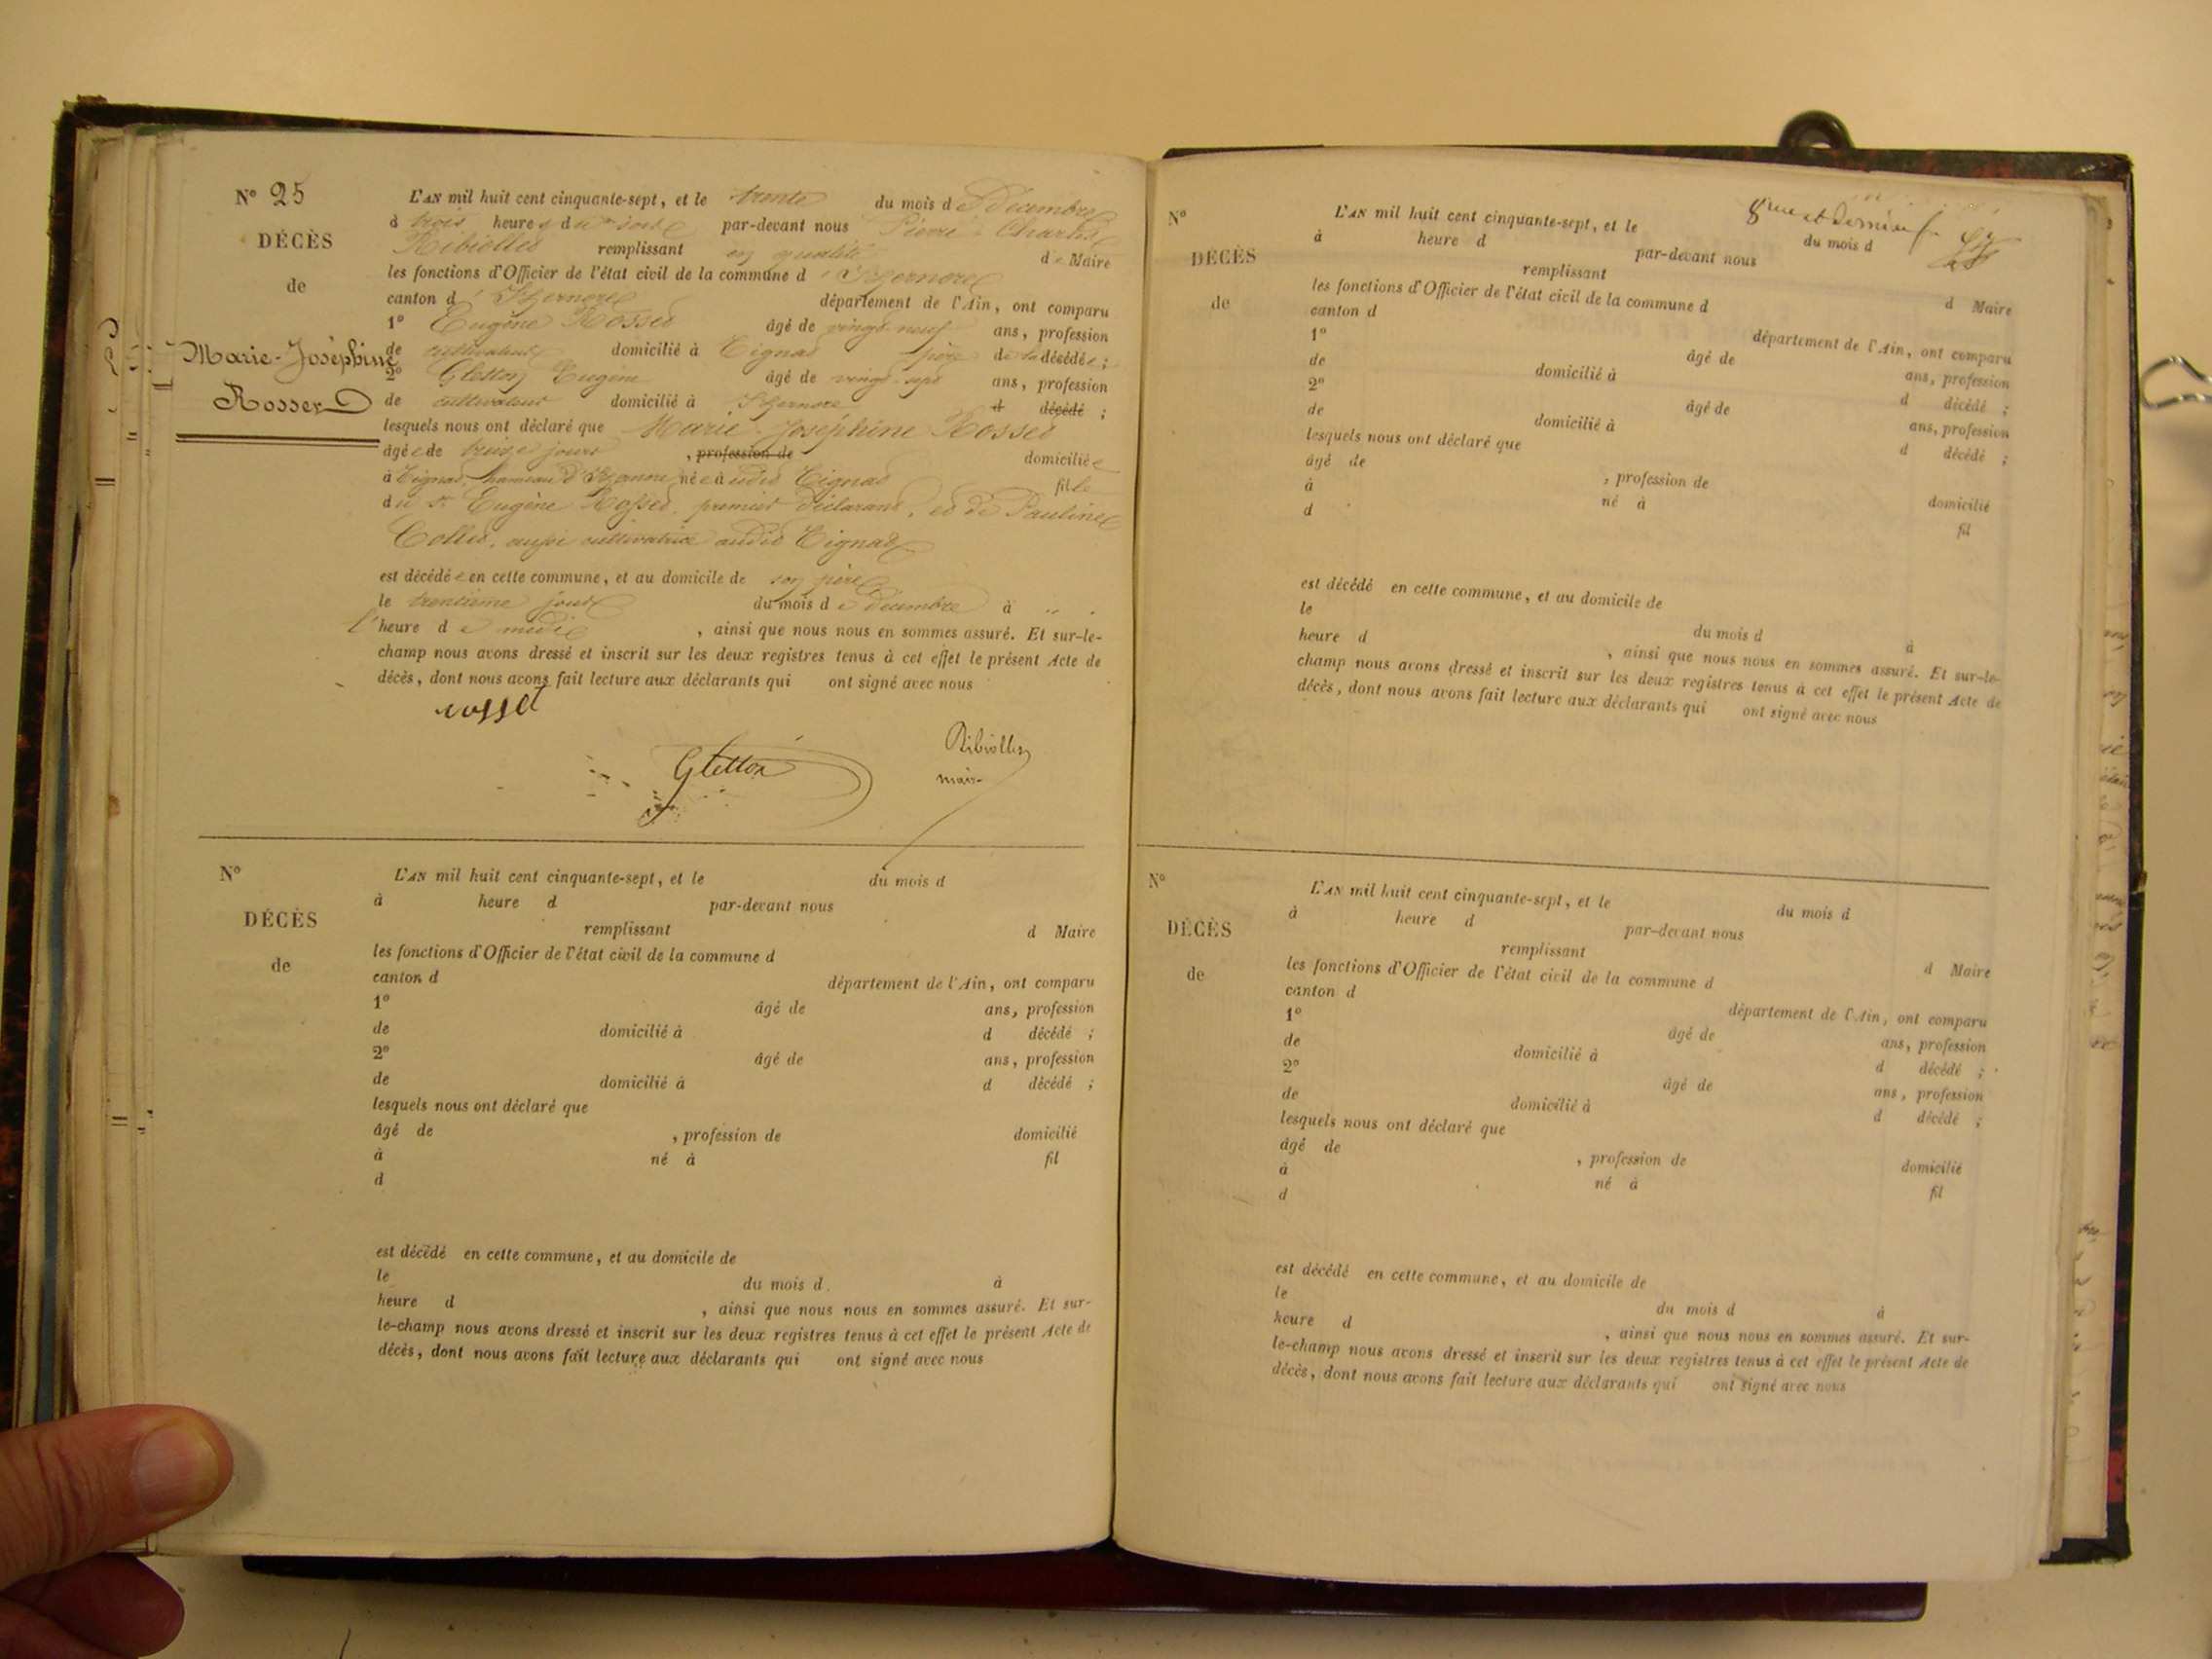 N° 25
DÉCÈS
de
Marie-Joséphine
Rosset
L'AN mil huit cent cinquante-sept, et le trente du mois de Décembre
à trois heures du soir par-devant nous Pierre-Charles
Ribiollet remplissant en qualité de Maire
les fonctions d'Officier de l'état civil de la commune d'Izernore
canton d'Izernore département de l'Ain, ont comparu
1° Eugène Rosset âgé de vingt-neuf ans, profession
de cultivateur domicilié à Tignat père de la décédée ;
2° Gletton Eugène âgé de vingt-sept ans, profession
de cultivateur domicilié à Izernore d décédé ;
lesquels nous ont déclaré que Marie-Joséphine Rosset
âgée de treize jours , profession de domiciliée
à Tignat, hameau d'Izernore née à udit Tignat fille
du sr Eugène Rosset, premier déclarant, et de Pauline
Collet, aussi cultivatrice audit Tignat
est décédée en cette commune, et au domicile de son père
le trentième jour du mois de décembre à
l'heure de midi , ainsi que nous nous en sommes assuré. Et sur-le-
champ nous avons dressé et inscrit sur les deux registres tenus à cet effet le présent Acte de
décès, dont nous avons fait lecture aux déclarants qui ont signé avec nous
rosset
Gletton
Ribiollet
maire
N°
DÉCÈS
de
L'AN mil huit cent cinquante-sept, et le du mois d
à heure d par-devant nous
remplissant d Maire
les fonctions d'Officier de l'état civil de la commune d
canton d département de l'Ain, ont comparu
1° âgé de ans, profession
de domicilié à d décédé ;
2° âgé de ans, profession
de domicilié à d décédé ;
lesquels nous ont déclaré que
âgé de , profession de domicilié
à né à fil
d
est décédé en cette commune, et au domicile de
le du mois d à
heure d , ainsi que nous nous en sommes assuré. Et sur-
le-champ nous avons dressé et inscrit sur les deux registres tenus à cet effet le présent Acte de
décès, dont nous avons fait lecture aux déclarants qui ont signé avec nous
8me et dernier f.
N°
DÉCÈS
de
L'AN mil huit cent cinquante-sept, et le du mois d
à heure d par-devant nous
remplissant d Maire
les fonctions d'Officier de l'état civil de la commune d
canton d département de l'Ain, ont comparu
1° âgé de ans, profession
de domicilié à d décédé ;
2° âgé de ans, profession
de domicilié à d décédé ;
lesquels nous ont déclaré que
âgé de , profession de domicilié
à né à fil
d
est décédé en cette commune, et au domicile de
le du mois d à
heure d , ainsi que nous nous en sommes assuré. Et sur-le-
champ nous avons dressé et inscrit sur les deux registres tenus à cet effet le présent Acte de
décès, dont nous avons fait lecture aux déclarants qui ont signé avec nous
N°
DÉCÈS
de
L'AN mil huit cent cinquante-sept, et le du mois d
à heure d par-devant nous
remplissant d Maire
les fonctions d'Officier de l'état civil de la commune d
canton d département de l'Ain, ont comparu
1° âgé de ans, profession
de domicilié à d décédé ;
2° âgé de ans, profession
de domicilié à d décédé ;
lesquels nous ont déclaré que
âgé de , profession de domicilié
à né à fil
d
est décédé en cette commune, et au domicile de
le du mois d à
heure d , ainsi que nous nous en sommes assuré. Et sur-
le-champ nous avons dressé et inscrit sur les deux registres tenus à cet effet le présent Acte de
décès, dont nous avons fait lecture aux déclarants qui ont signé avec nous